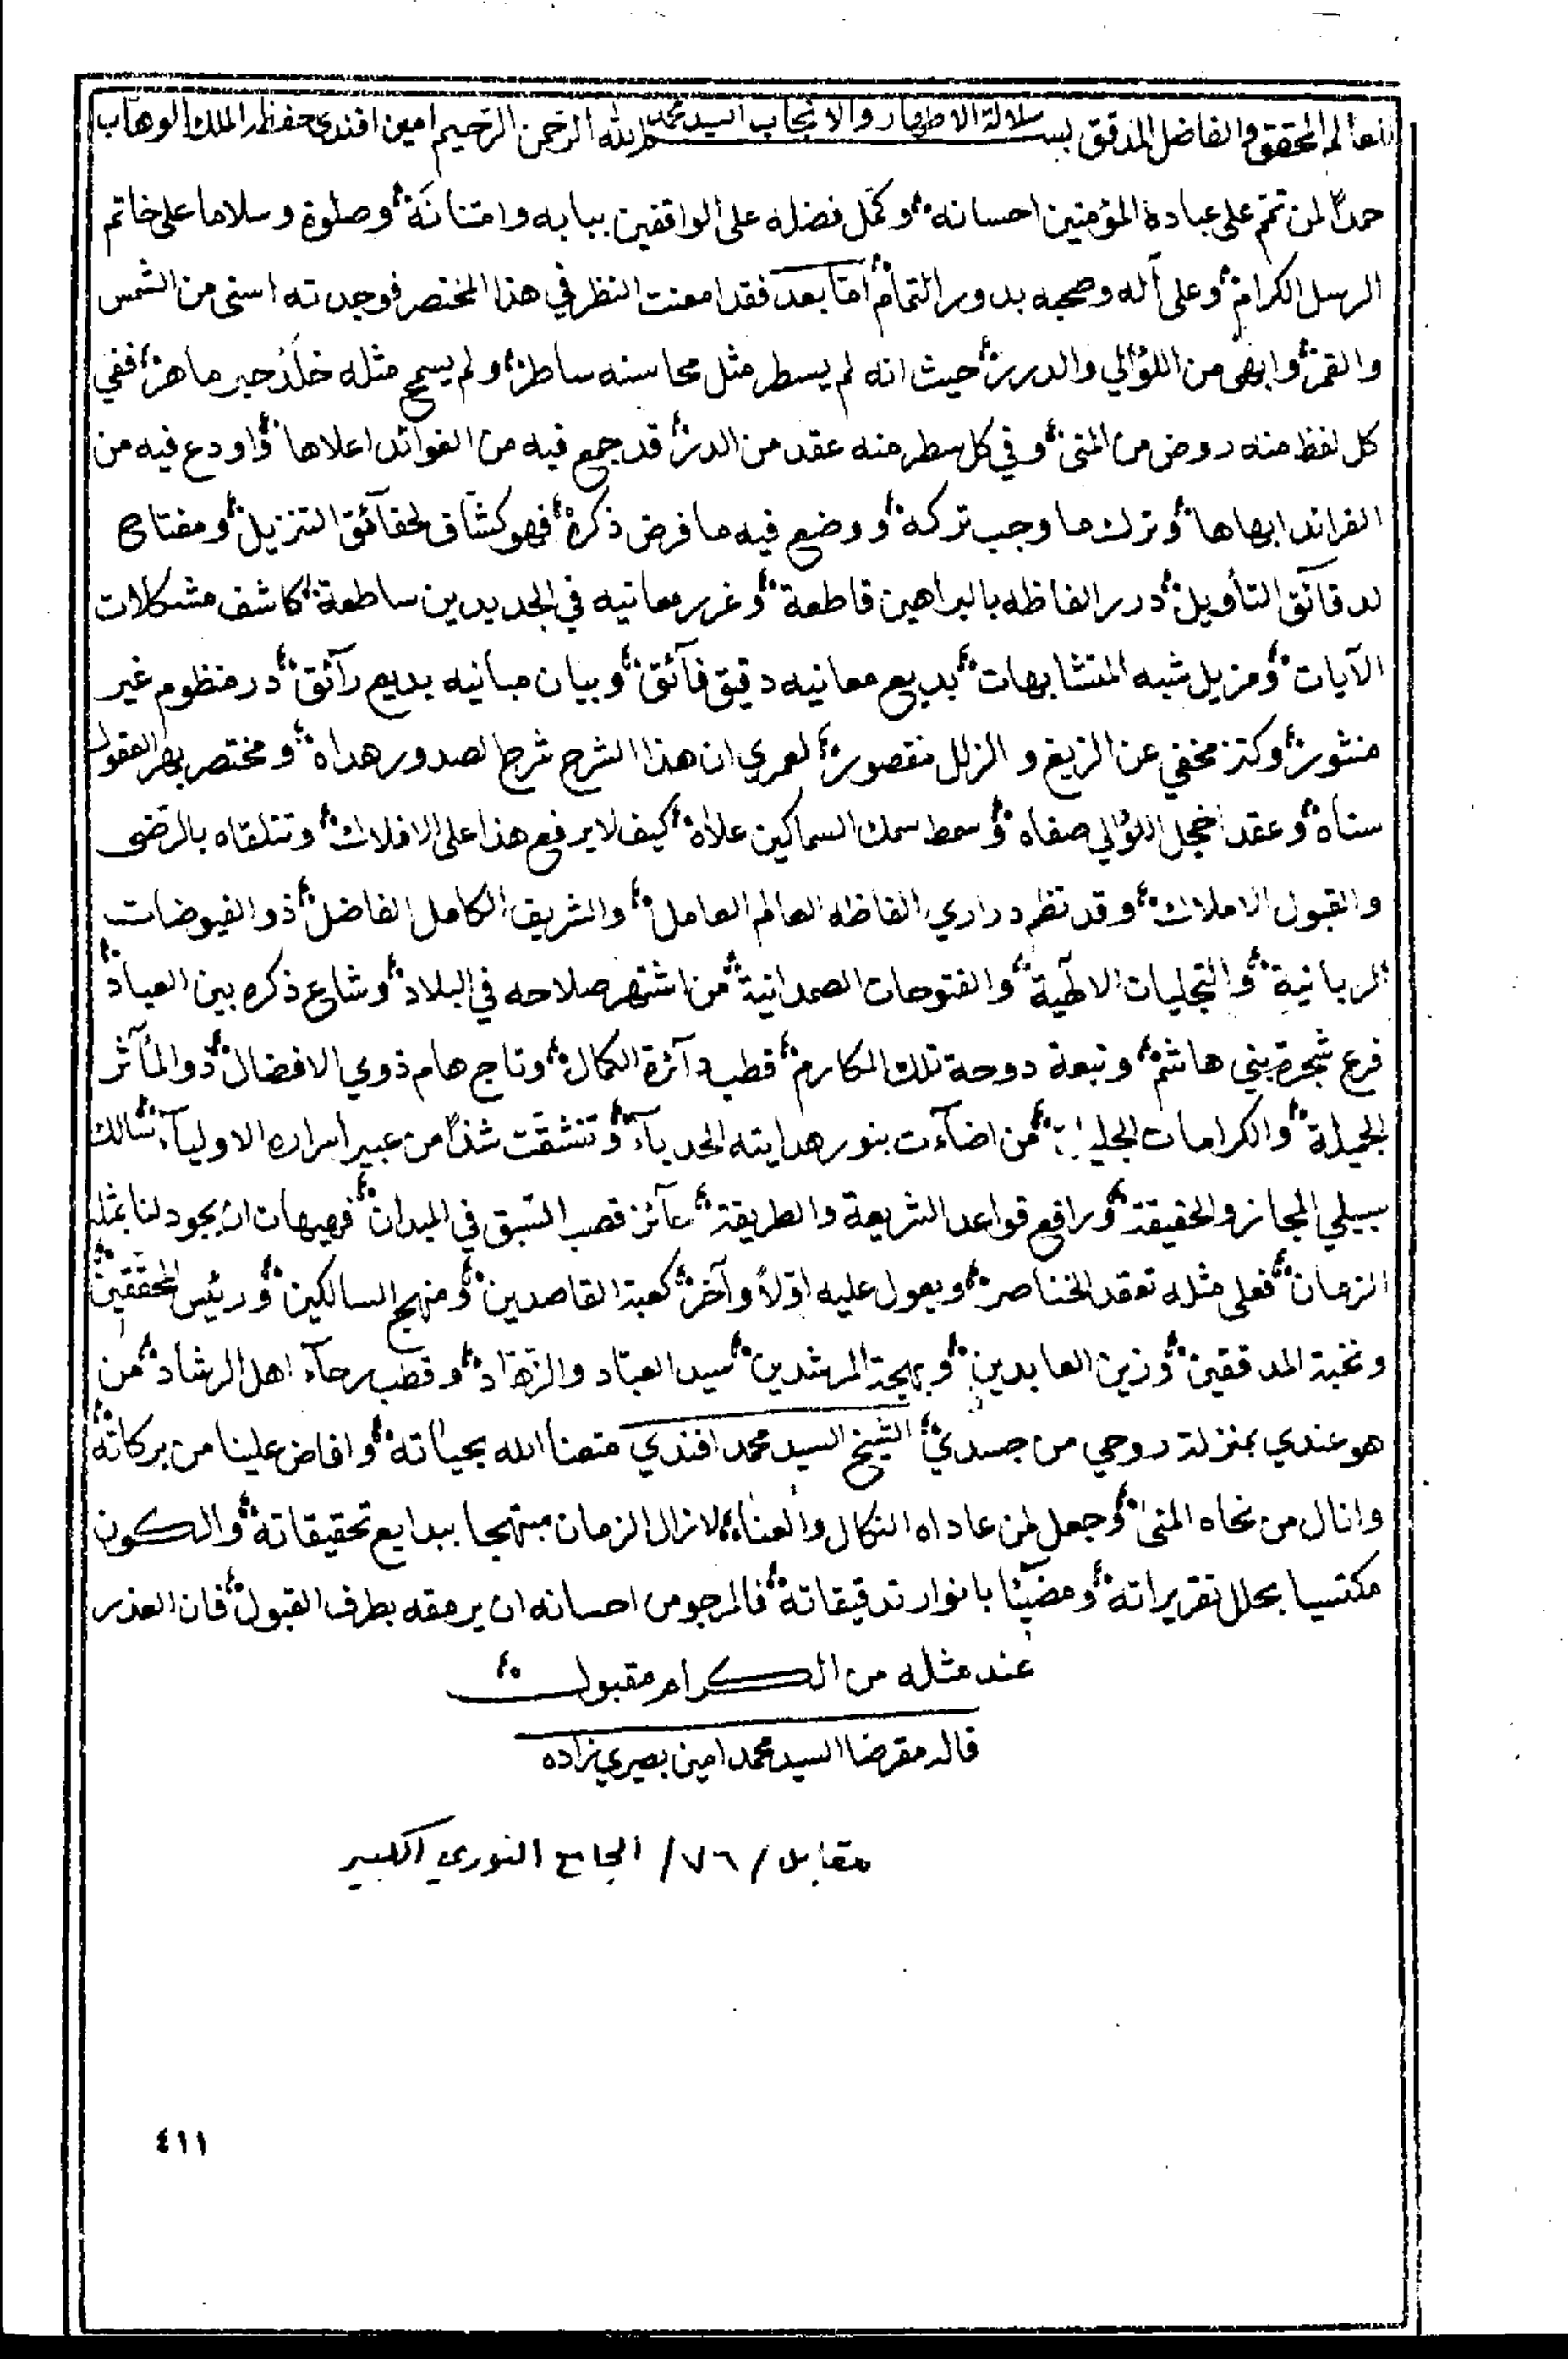 للعالم المحقق والفاضل المدقق بسـ سلالة الاطهار والانجاب السيد محمد ـم الله الرحمن الرحيم امين افندي حفظه الملك الوهاب
حمدًا لمن تمّم على عباده المؤمنين احسانه وكمّل فضله على الواقفين ببابه وامتنانه وصلوة وسلاما على خاتم
الرسل الكرام وعلى آله وصحبه بدور التمام امّا بعد فقد امعنت النظر في هذا المختصر فوجدته اسنى من الشمس
والقمر وابهى من اللؤالي والدرر حيث انه لم يسطر مثل محاسنه ساطر ولم يسمح مثله خلد حبر ماهر ففي
كل لفظ منه روض من المنى وفي كل سطر منه عقد من الدر قد جمع فيه من الفوائد اعلاها واودع فيه من
الفرائد ابهاها وترك ما وجب تركه ووضع فيه ما فرض ذكره فهو كشّاف لحقآئق التنزيل ومفتاح
لدقآئق التأويل درر الفاظه بالبراهين قاطعة وغرر معانيه في الجديدين ساطعة كاشف مشكلات
الآيات ومزيل شبه المتشابهات بديع معانيه دقيق فآئق وبيان مبانيه بديع رآئق در منظوم غير
منثور وكنز مخفي عن الزيغ والزلل مقصور لعمري ان هذا الشرح شرح الصدور هداه ومختصر بهر العقول
سناه وعقد اخجل اللؤالي صفاه وسمط سمك السماكين علاه كيف لا يرفع هذا على الافلاك وتتلقاه بالرّضى
والقبول الاملاك وقد نظم دراري الفاظه العالم العامل والشريف الكامل الفاضل ذو الفيوضات
الربانية والتجليات الالٓهية والفتوحات الصمدانية من اشتهر صلاحه في البلاد وشاع ذكره بين العباد
فرع شجرة بني هاشم ونبعة دوحة تلك المكارم قطب دآئرة الكمال وتاج هام ذوي الافضال ذو المآثر
الجميلة والكرامات الجليلة من اضآءت بنور هدايته الحدبآء وتنشقت شذًا من عبير اسراره الاوليآء سالك
سبيلي المجاز والحقيقة ورافع قواعد الشريعة والطريقة حآئز قصب السّبق في الميدان فهيهات ان يجود لنا بمثله
الزمان فعلى مثله تعقد الخناصر ويعول عليه اوّلاً وآخر كعبة القاصدين ومنهج السالكين ورئيس المحققين
ونخبة المدققين وزين العابدين وبهجة المرشدين سيد العبّاد والزهّاد وقطب رحآء اهل الرشاد من
هو عندي بمنزلة روحي من جسدي الشيخ السيد محمد افندي متعنا الله بحياته وافاض علينا من بركاته
وانال من نحاه المنى وجعل لمن عاداه النكال والعناء لازال الزمان مبتهجا ببدايع تحقيقاته والكون
مكتسيا بحلل تقريراته ومضيئا بانوار تدقيقاته فالمرجو من احسانه ان يرمقه بطرف القبول فان العذر
عند مثله من الكرام مقبول
قاله مقرضا السيد محمد امين بصيري زاده
مقابل /٧٦/ الجامع النوري الكبير
٤١١